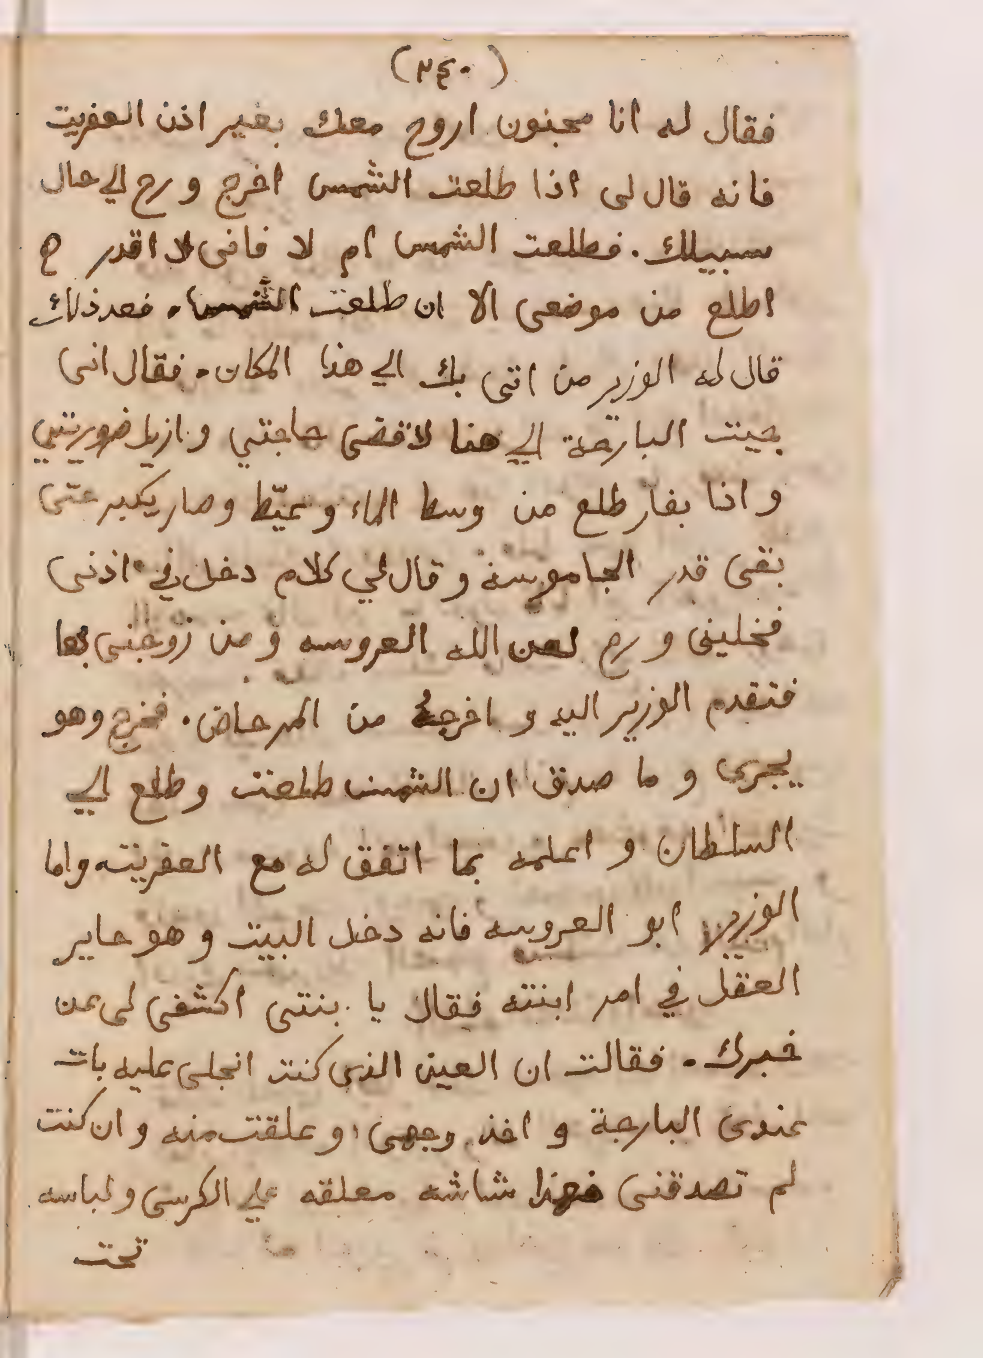 (٢٤٠)
فقال له انا مجنون اروح معك بغير اذن العفريت
فانه قال لى اذا طلعت الشمس اخرج و رح الي حال
سبيلك . فطلعت الشمس ام لا فانى لا اقدر
اطلع من موضعى الا ان طلعت الشمس . فعند ذلك
قال له الوزير من اتى بك الي هذا المكان . فقال انى
جيت البارحة الي هنا لاقضى حاجتي و ازيل ضرورتي
و اذا بفار طلع من وسط الماء و عيّط و صار يكبر حتى
بقى قدر الجاموسه و قال لي كلام دخل في اذنى
فخلينى و رح لعن الله العروسه و من زوجنى بها
فتقدم الوزير اليه و اخرجه من المرحاض . فخرج وهو
يجرى و ما صدق ان الشمس طلعت و طلع الي
السلطان و اعلمه بما اتفق له مع العفريت و اما
الوزير ابو العروسه فانه دخل البيت و هو حاير
العقل في امر ابنته فقال يا بنتى اكشفى لى عن
خبرك . فقالت ان الذى كنت انجلى عليه بات
عندى البارحة و اخذ وجهى و علقت منه و ان كنت
لم تصدقنى فهذا شاشه معلقه على الكرسى و لباسه
تحت